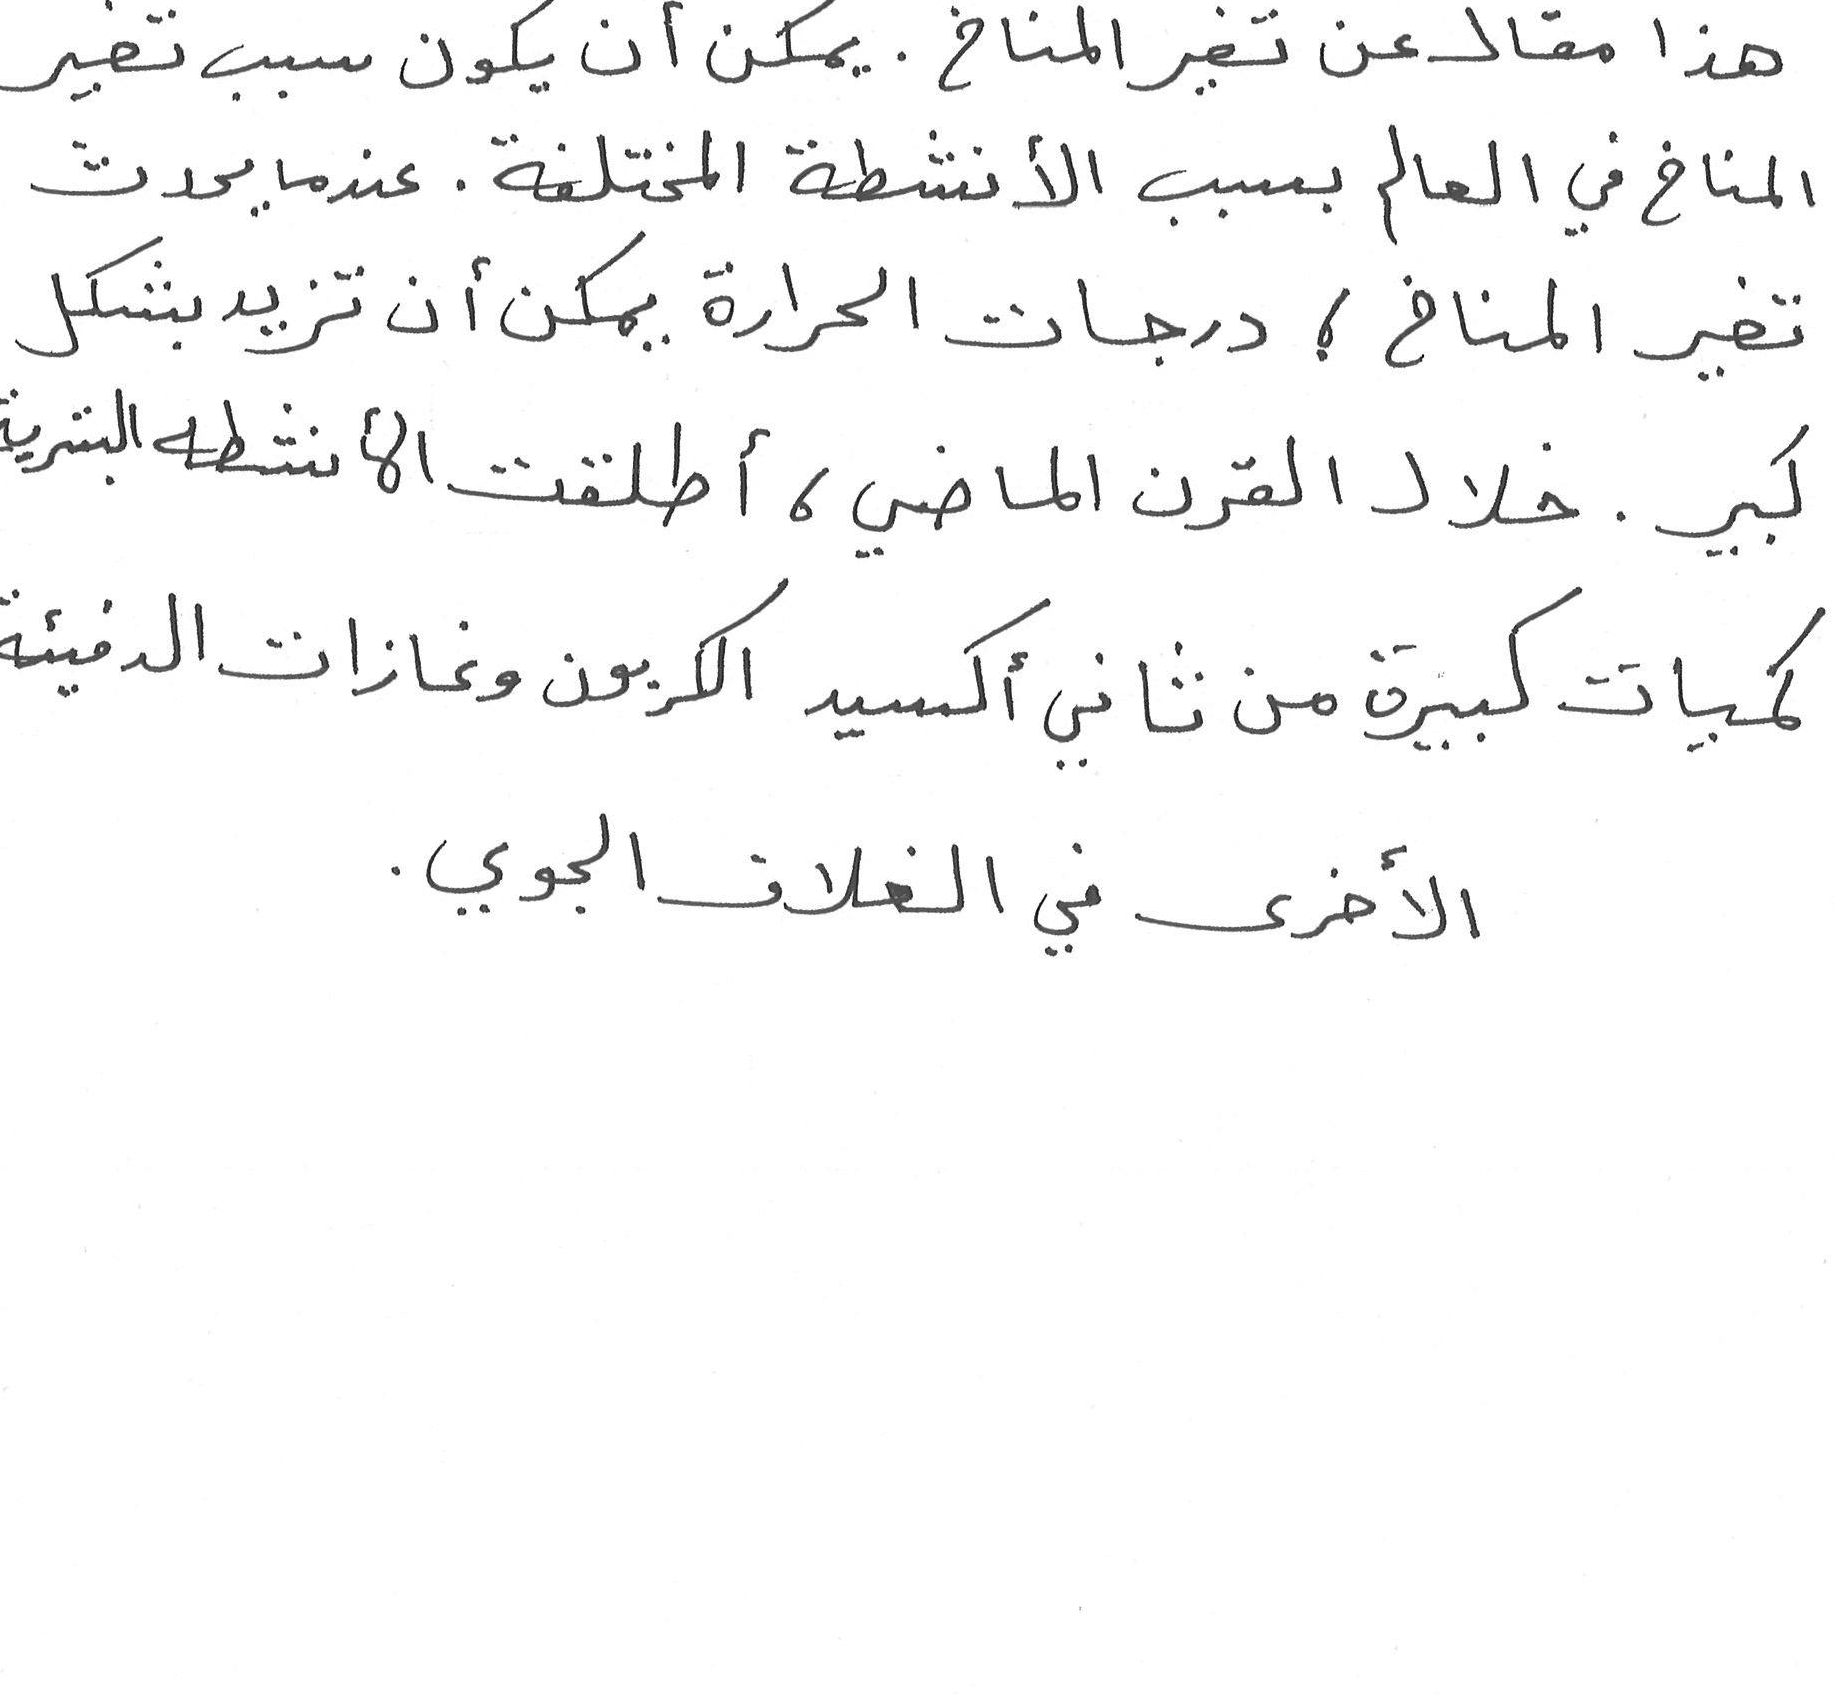 هذا مقال عن تغير المناخ. يمكن أن يكون سبب تغير
المناخ في العالم بسبب الأنشطة المختلفة. عندما يحدث
تغير المناخ، درجات الحرارة يمكن أن تزيد بشكل
كبير. خلال القرن الماضي، أطلقت الأنشطه البشرية
كميات كبيرة من ثاني أكسيد الكربون وغازات الدفيئة
الأخرى في الغلاف الجوي.